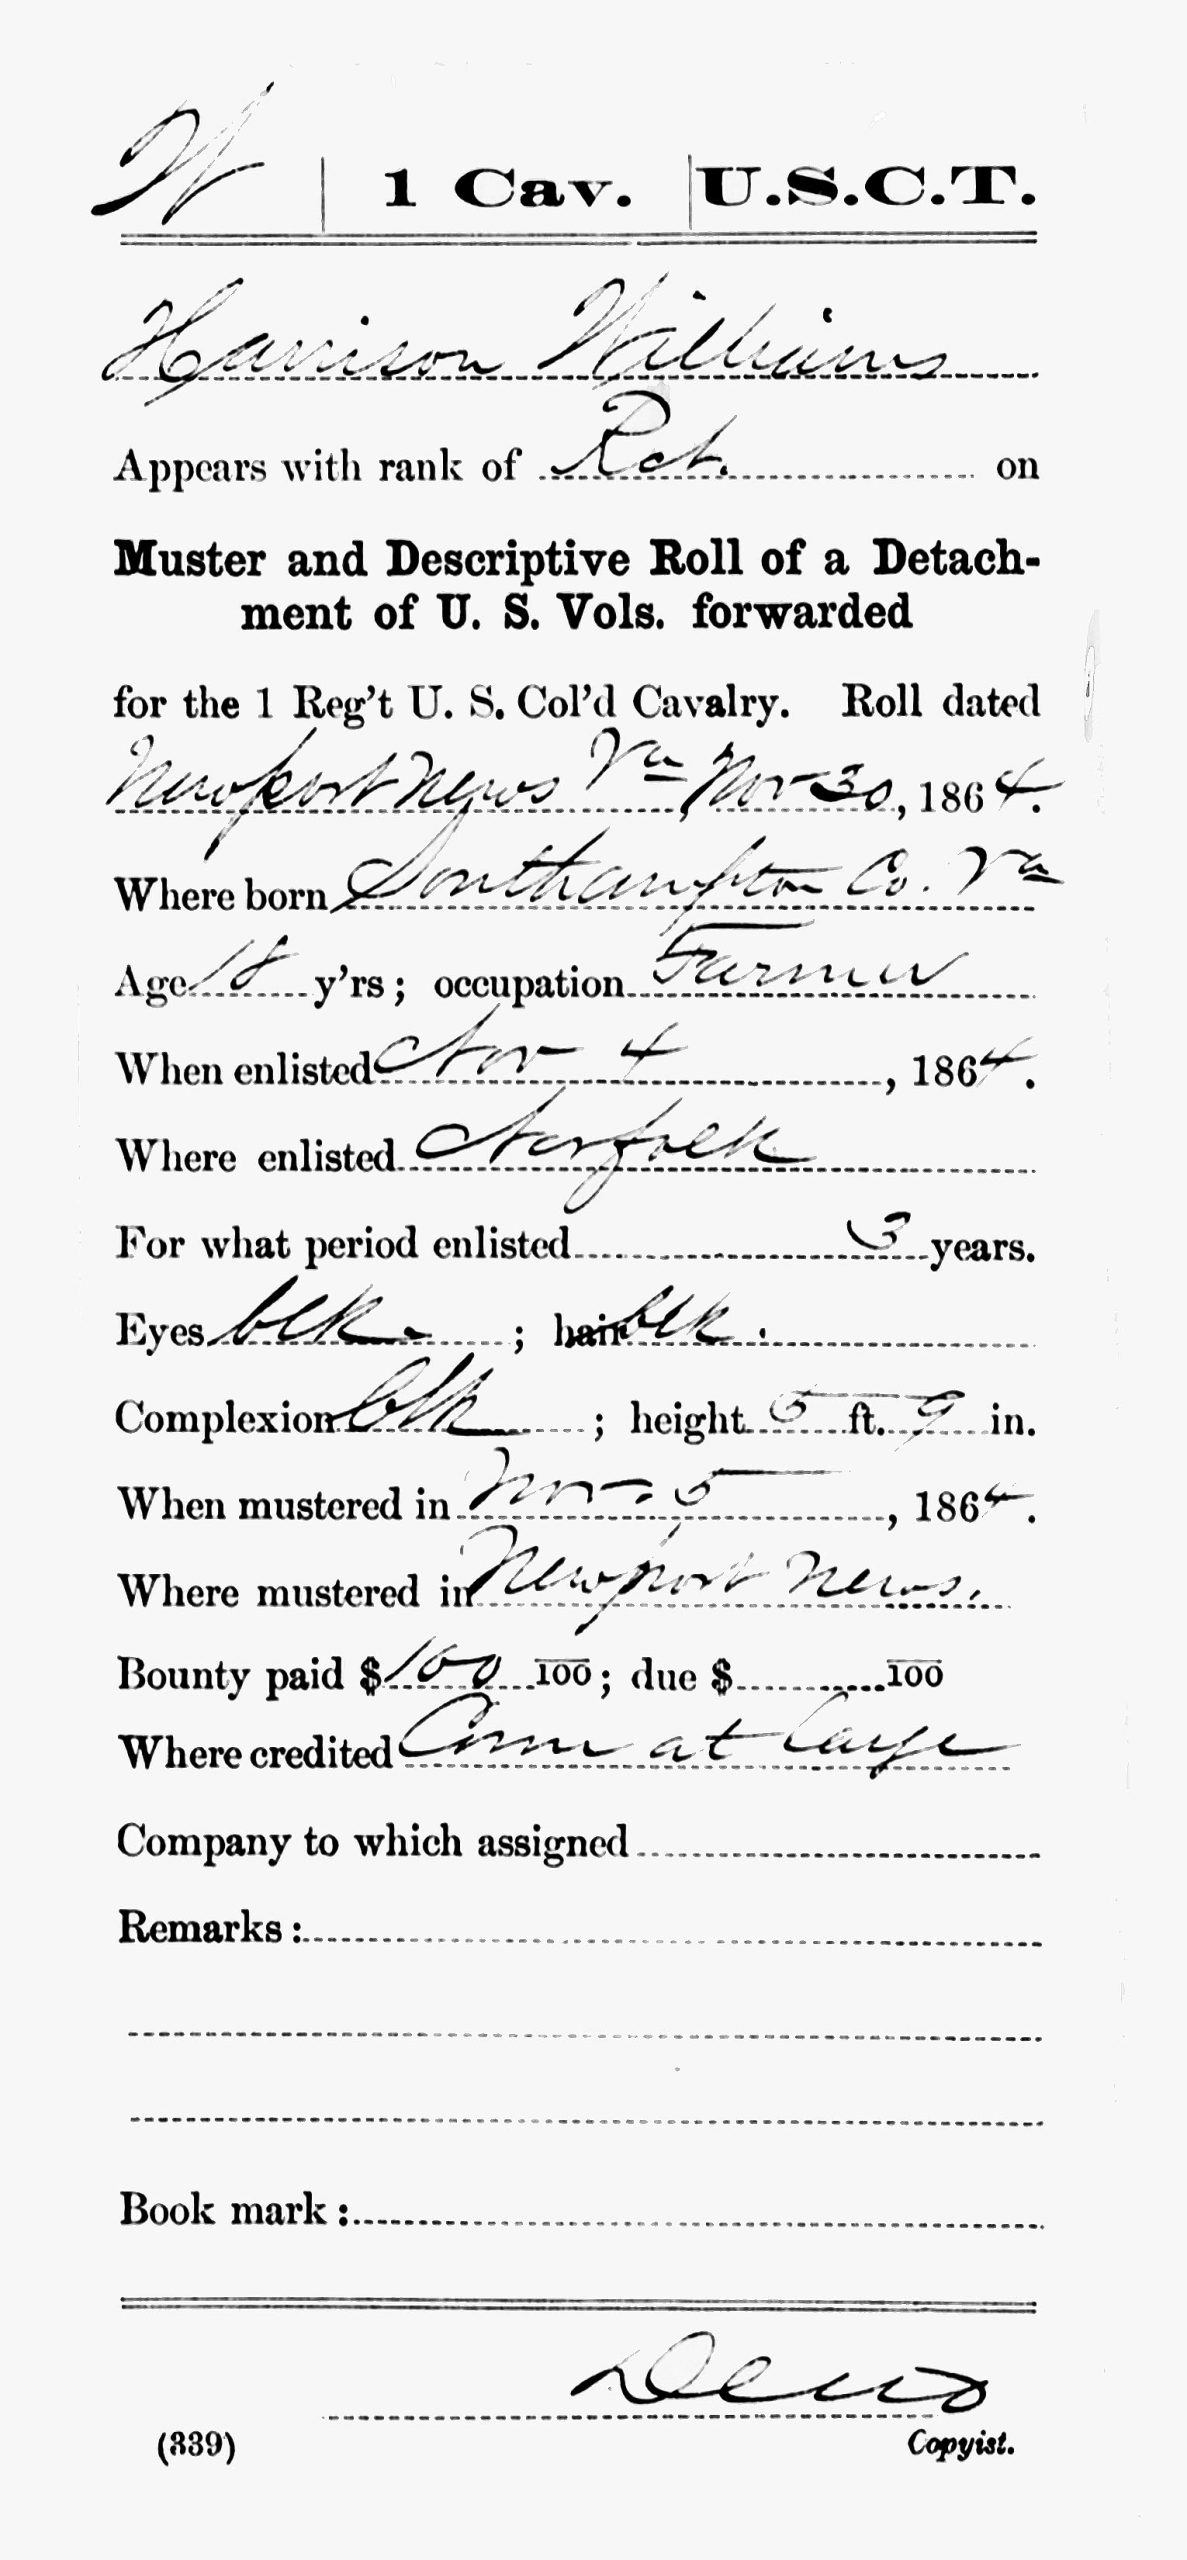 W | 1 Cav. | U.S.C.T.
Harrison Williams
Appears with rank of Rct. on
Muster and Descriptive Roll of a Detach-
ment of U. S. Vols. forwarded
for the 1 Reg't U. S. Col'd Cavalry. Roll dated
Newport News Va, Nov 30, 1864.
Where born Southampton Co. Va
Age 18 y'rs; occupation Farmer
When enlisted Nov 4, 1864.
Where enlisted Norfolk
For what period enlisted 3 years.
Eyes blk.; hair blk.
Complexion blk; height 5 ft. 9 in.
When mustered in Nov. 5, 1864.
Where mustered in Newport News.
Bounty paid $100 100; due $ 100
Where credited Conn at large
Company to which assigned
Remarks:
Book mark:
(339) Copyist.